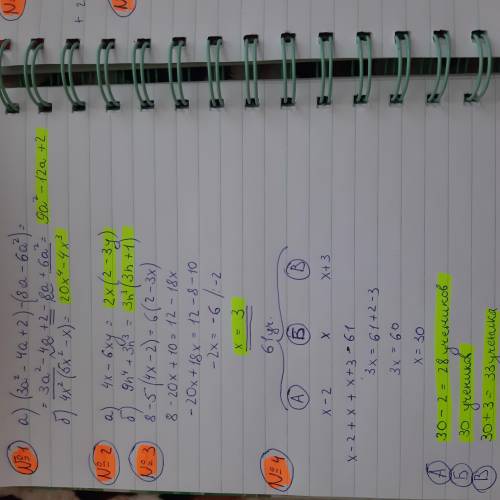 №1 а) (3a² - 4a + 2) - (8a - 6a²) =
= 3a² - 4a + 2 - 8a + 6a² = 9a² - 12a + 2
б) 4x²(5x² - x) = 20x⁴ - 4x³
№2 а) 4x - 6xy = 2x(2 - 3y)
б) 9h⁴ + 3h³ = 3h³(3h + 1)
№3 8 - 5(4x - 2) = 6(2 - 3x)
8 - 20x + 10 = 12 - 18x
-20x + 18x = 12 - 8 - 10
-2x = -6 /-2
x = 3
№4 61 уч.
А Б В
x - 2 x x + 3
x - 2 + x + x + 3 = 61
3x = 61 + 2 - 3
3x = 60
x = 30
А 30 - 2 = 28 учеников
Б 30 учеников
В 30 + 3 = 33 ученика